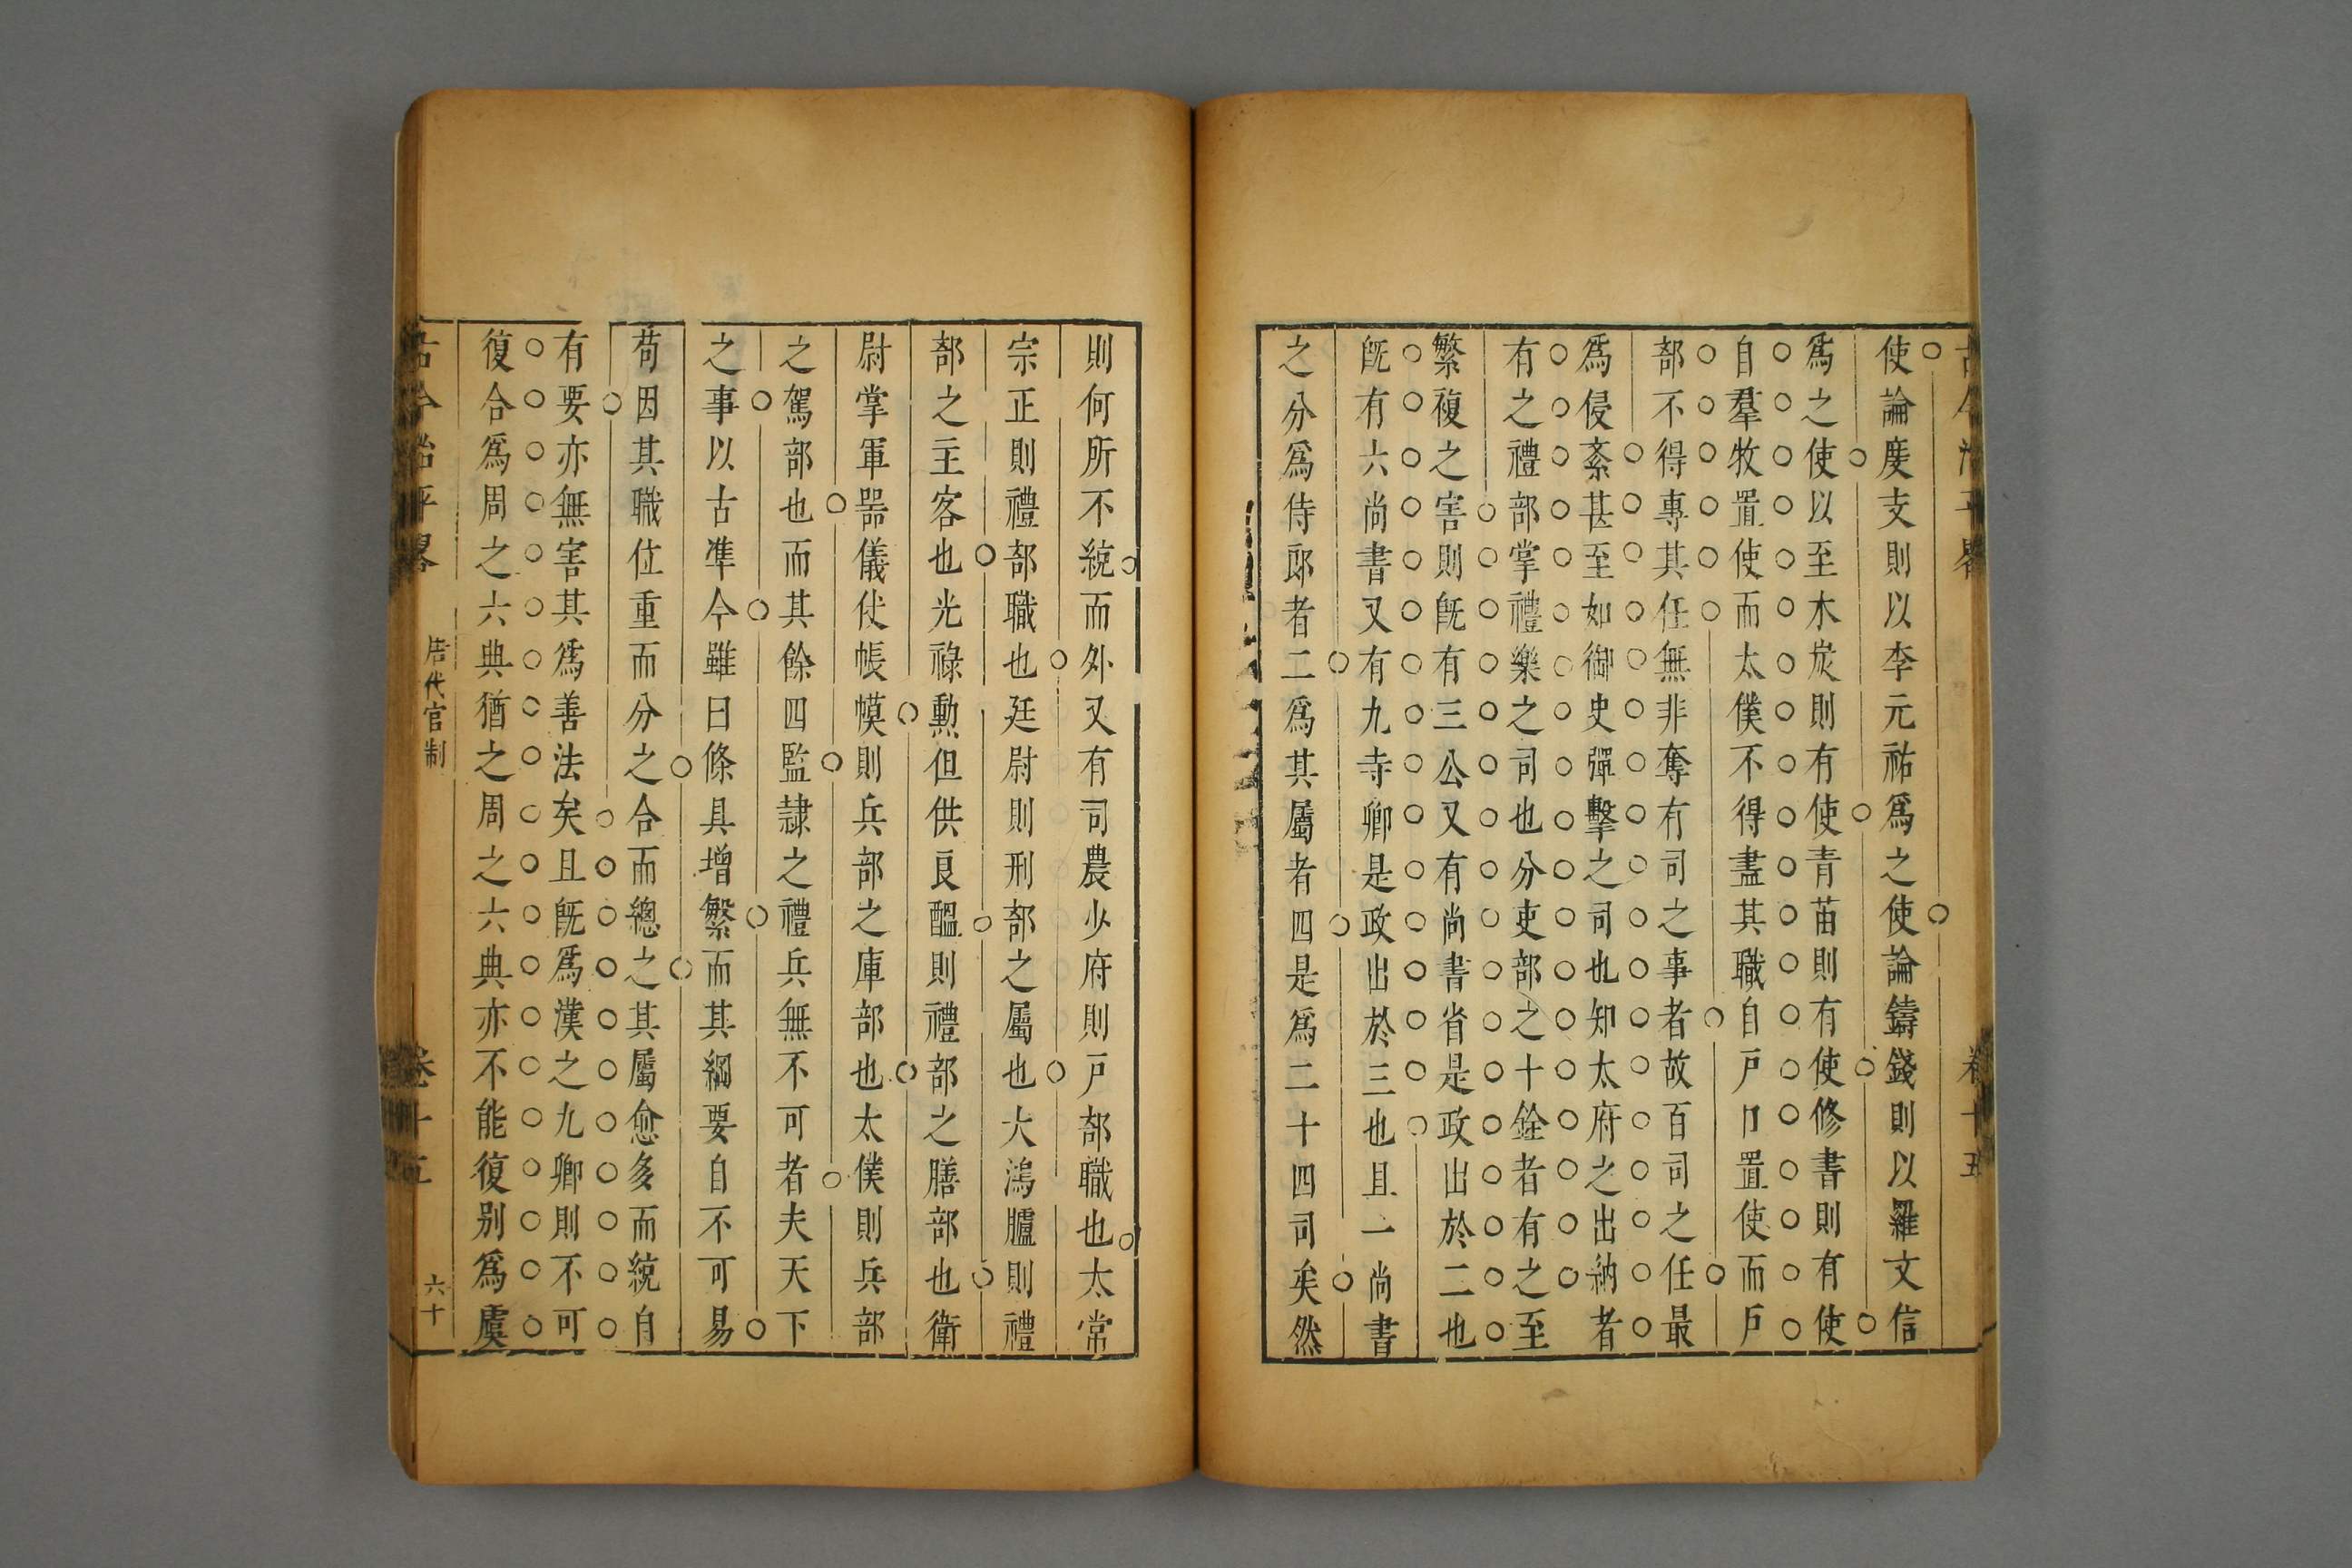 使論度支則以李元祐爲之使論鑄錢則以羅文信
爲之使以至木炭則有使青苗則有使修書則有使
自羣牧置使而太僕不得盡其職自戶口置使而戶
部不得專其任無非奪有司之事者故百司之任最
爲侵紊甚至如御史彈擊之司也知太府之出納者
有之禮部掌禮樂之司也分吏部之十銓者有之至
繁複之害則旣有三公又有尚書省是政出於二也
旣有六尚書又有九寺卿是政出於三也且一尚書
之分爲侍郎者二爲其屬者四是爲二十四司矣然
則何所不統而外又有司農少府則戶部職也太常
宗正則禮部職也廷尉則刑部之屬也大鴻臚則禮
部之主客也光祿勳但供良醞則禮部之膳部也衛
尉掌軍器儀仗帳幙則兵部之庫部也太僕則兵部
之駕部也而其餘四監隷之禮兵無不可者夫天下
之事以古準今雖曰條具增繁而其綱要自不可易
苟因其職位重而分之合而總之其屬愈多而統自
有要亦無害其爲善法矣且旣爲漢之九卿則不可
復合爲周之六典猶之周之六典亦不能復别爲虞
古今治平畧 唐代官制 卷十五 六十